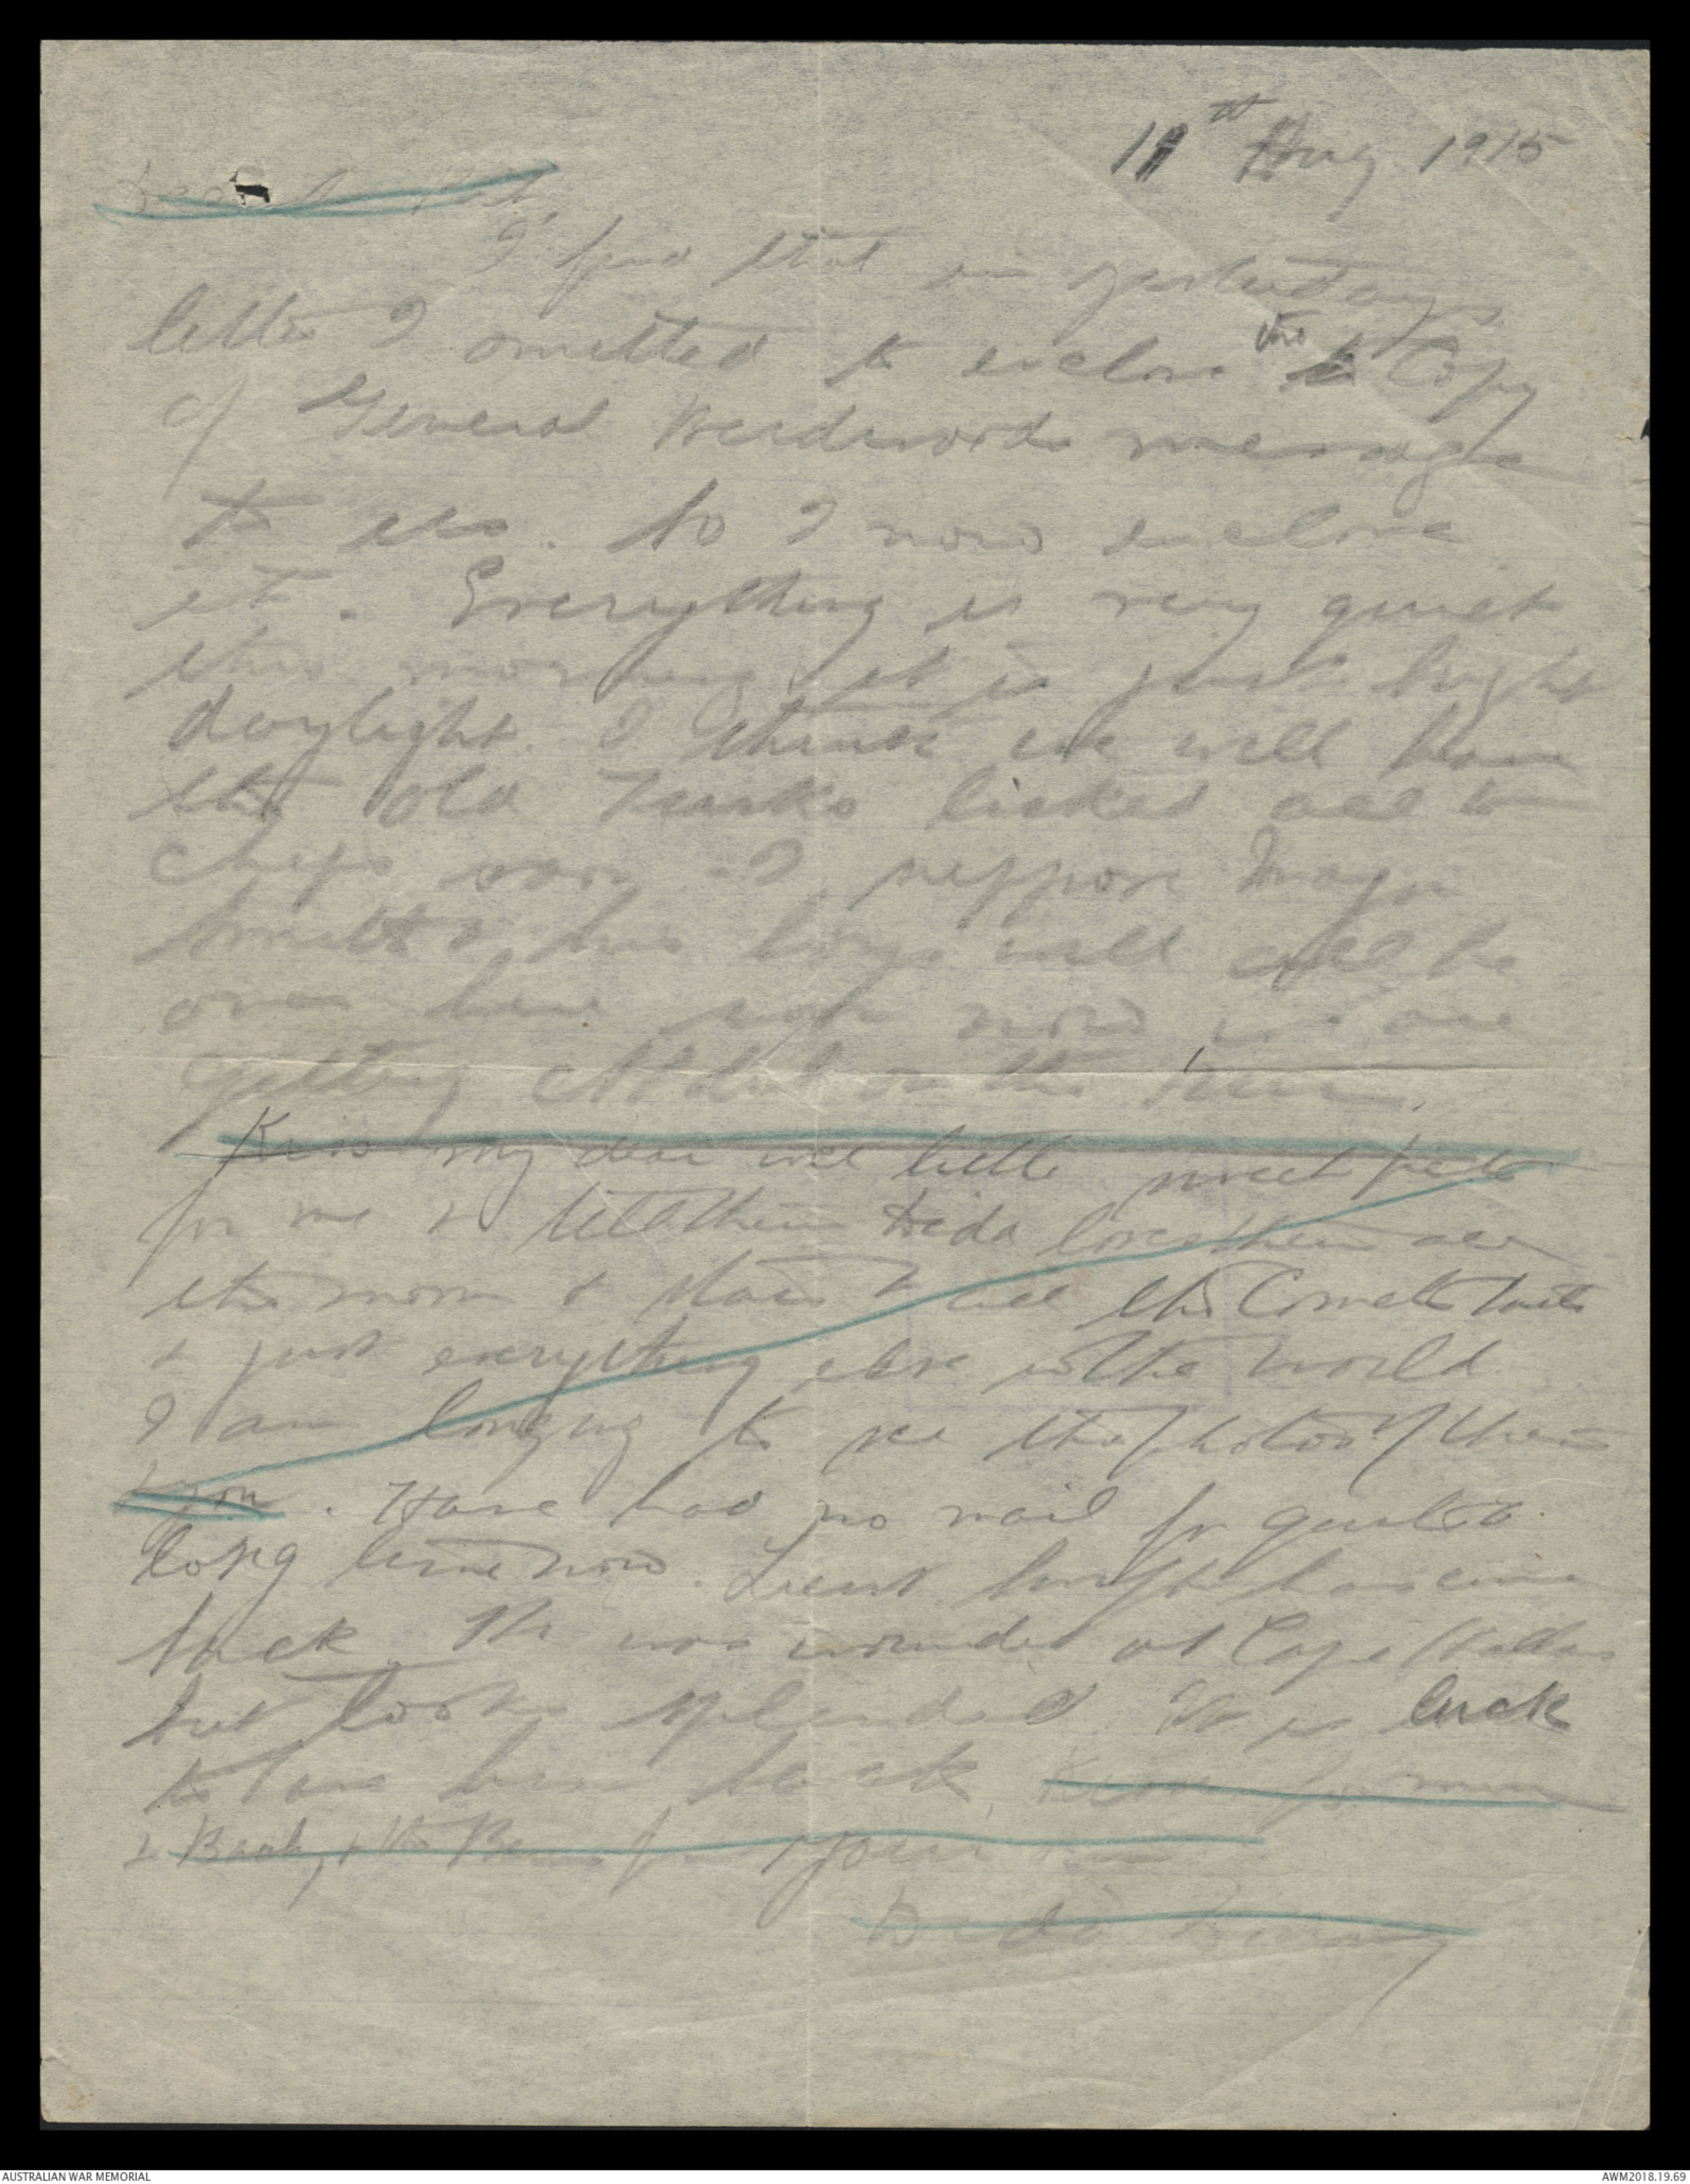 11th Aug 1915
I find that in yesterdays
letter I omitted to enclose the Copy
of General Birdwoods message
to us. So I now enclose
it. Everything is very quiet
this morning it is just bright
daylight. I think we will have
the old Turks licked all to
chips soon. I suppose Major
Smith & his boys will all be
over here soon now we are
getting Abdul on the run.
Kiss my dear wee little sweet
for me & tell them Dida loves them all
the moon & stars & all the Comets tails
& just everything else in the world
I am longing to see the photos of them
& you. Have had no mail for quite a
long time now. Lieut has come
back. He was wounded at Cape Hellas
but looks splendid. It is luck
to have him back.
& Baby & the for your
Dida
AUSTRALIAN WAR MEMORIAL
AWM2018.19.69